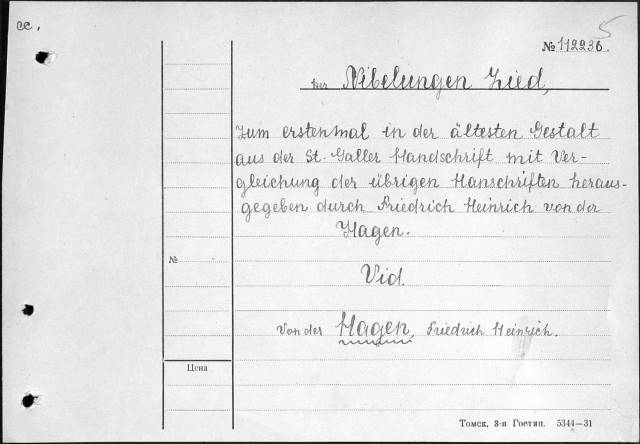 ее,
5
№ 112236.
der Nibelungen Lied,
Zum erstenmal in der ältesten Gestalt
aus der St. Galler Handschrift mit Ver-
gleichung der übrigen Hanschriften heraus-
gegeben durch Friedrich Heinrich von der
Hagen.
№
Vid.
Von der Hagen, Friedrich Heinrich.
Цена
Томск, 3-я Гостип. 5344—31